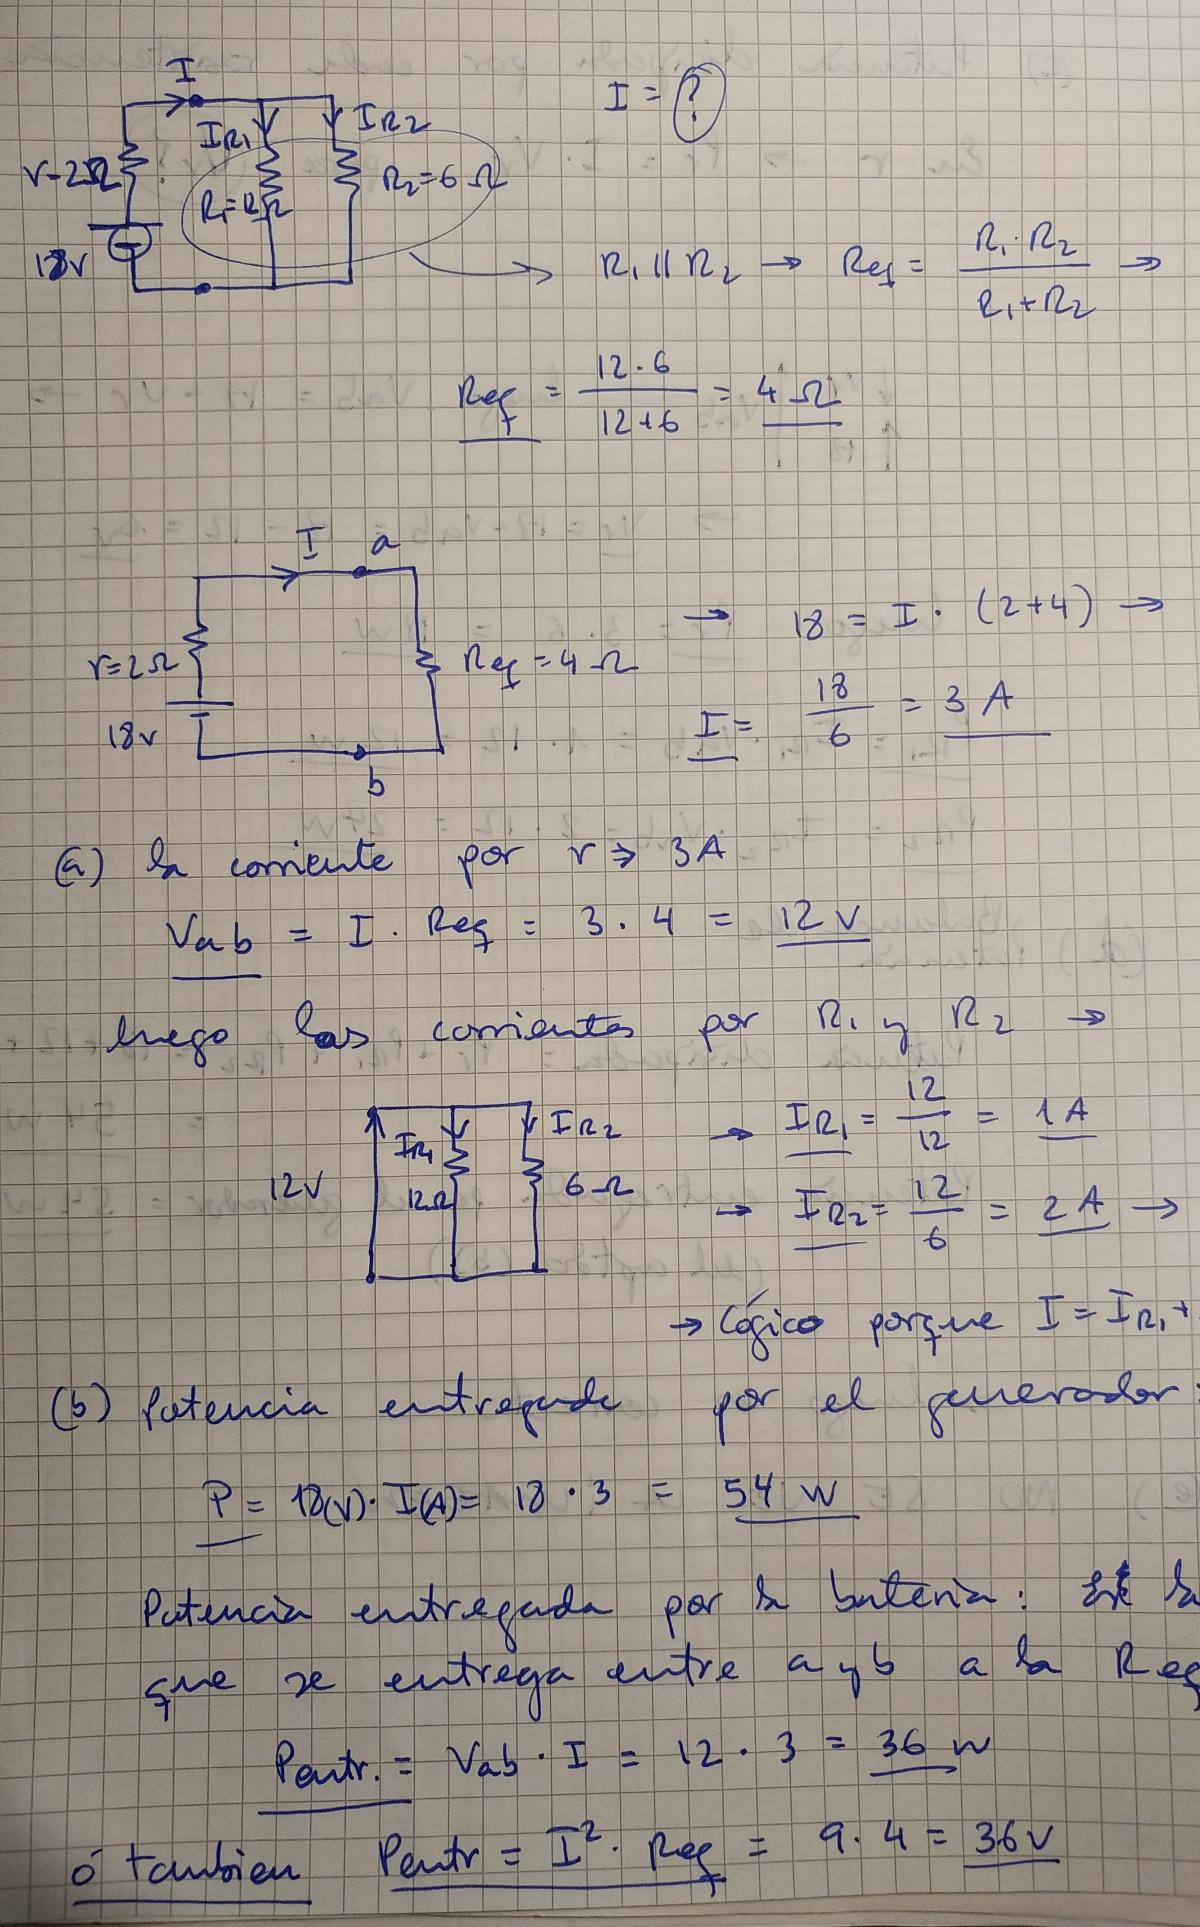 I
I = ?
IR1
IR2
r=2Ω
R1=12Ω
R2=6Ω
18V
R1 || R2 → Req = R1·R2 / R1+R2 →
Req = 12·6 / 12+6 = 4Ω
I a
→ 18 = I · (2+4) →
r=2Ω
Req = 4Ω
I = 18/6 = 3 A
18V
b
(a) la corriente por r → 3A
Vab = I · Req = 3 · 4 = 12 V
luego las corrientes por R1 y R2 →
IR1
IR2
→ IR1 = 12/12 = 1 A
12V
12Ω
6Ω
→ IR2 = 12/6 = 2 A →
→ Lógico porque I = IR1 +
(b) Potencia entregada por el generador:
P = 18(V) · I(A) = 18 · 3 = 54 W
Potencia entregada por la bateria: la
que se entrega entre a y b a la Req
Pentr. = Vab · I = 12 · 3 = 36 W
ó tambien Pentr = I² · Req = 9 · 4 = 36 V